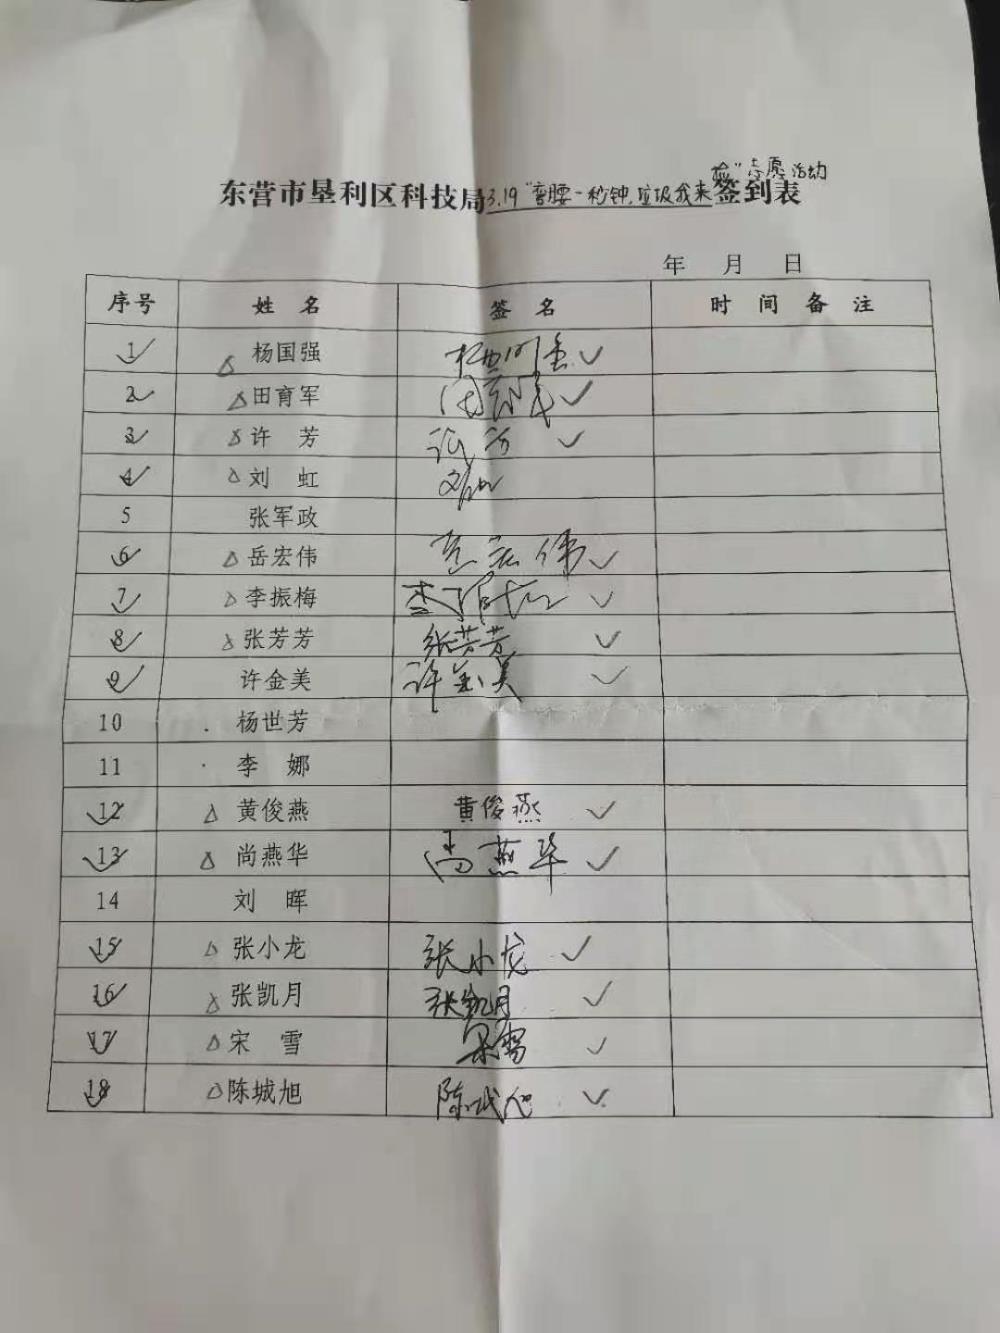 捡"志愿活动
东营市垦利区科技局3.19"弯腰一秒钟,垃圾我来签到表
年 月 日
序号 姓 名 签 名 时 间 备 注
1 杨国强 杨国强
2 田育军 田育军
3 许 芳 许芳
4 刘 虹 刘虹
5 张军政
6 岳宏伟 岳宏伟
7 李振梅 李振梅
8 张芳芳 张芳芳
9 许金美 许金美
10 杨世芳
11 李 娜
12 黄俊燕 黄俊燕
13 尚燕华 尚燕华
14 刘 晖
15 张小龙 张小龙
16 张凯月 张凯月
17 宋 雪 宋雪
18 陈城旭 陈城旭